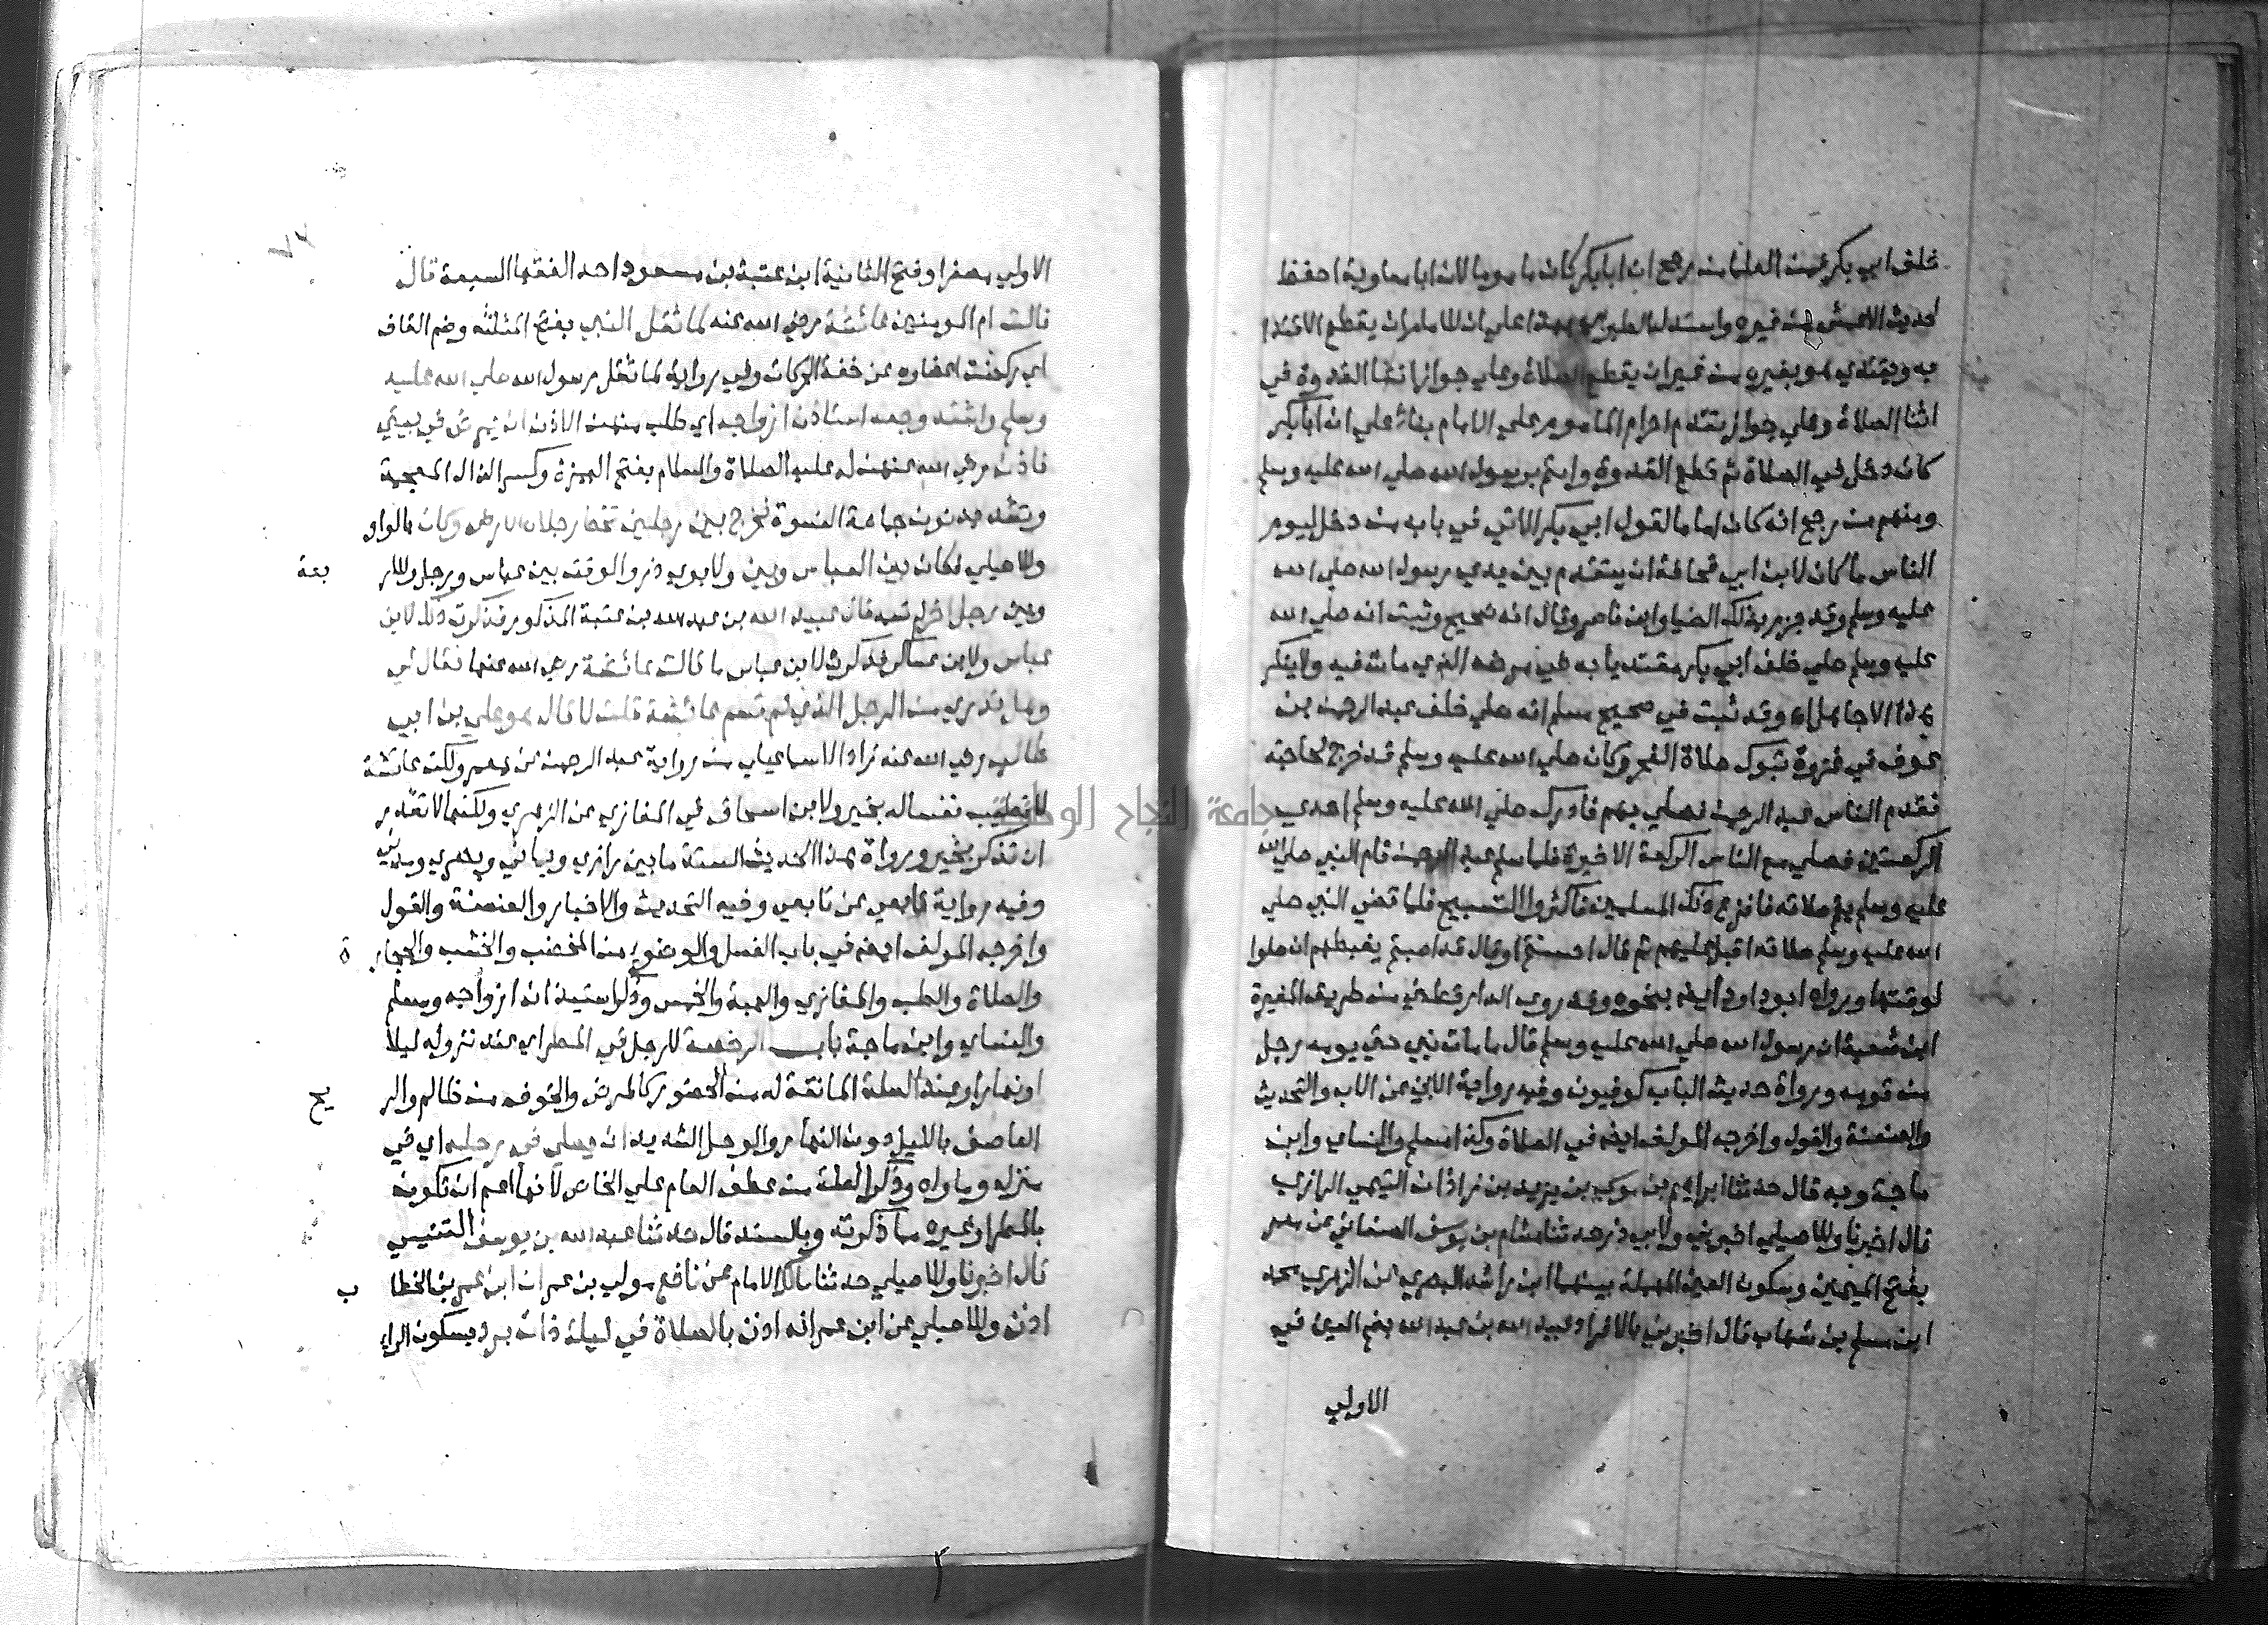 خلف ابي بكر فمن العلما من رجح ان ابا بكر كان ماموما لان ابا معاوية احفظ
لحديث الاعمش من غيره واستدل الطبري بهذا علي ان للامام ان يقطع الاقتدا
به ويقتدي هو بغيره من غير ان يقطع الصلاة وعلي جواز انشا القدوة في
اثنا الصلاة وعلي جواز تقدم احرام الماموم علي الامام بناء علي ان ابا بكر
كان دخل في الصلاة ثم قطع القدوة وايتم برسول الله صلي الله عليه وسلم
ومنهم من رجح انه كان اماما لقول ابي بكر الاتي في باب من دخل ليوم
الناس ما كان لابن ابي قحافة ان يتقدم بين يدي رسول الله صلي الله
عليه وسلم وقد جزم بذلك الضيا وابن ناصر وقال انه صحيح وثبت انه صلي الله
عليه وسلم صلي خلف ابي بكر مقتديا به في مرضه الذي مات فيه ولا ينكر
هذا الا جاهل اه وقد ثبت في صحيح مسلم انه صلي خلف عبد الرحمن بن
عوف في غزوة تبوك صلاة الفجر وكان صلي الله عليه وسلم قد خرج لحاجته
فقدم الناس عبد الرحمن فصلي بهم فادرك صلي الله عليه وسلم احدي
الركعتين فصلي مع الناس الركعة الاخيرة فلما سلم عبد الرحمن قام النبي صلي الله
عليه وسلم يتم صلاته فافزع ذلك المسلمين فاكثروا التسبيح فلما قضي النبي صلي
الله عليه وسلم صلاته اقبل عليهم ثم قال احسنتم او قال قد اصبتم يغبطهم ان صلوا
لوقتها ورواه ابو داود ايضا بنحوه وقد روي الدارقطني من طريق المغيرة
ابن شعبة ان رسول الله صلي الله عليه وسلم قال ما مات نبي حتي يومه رجل
من قومه ورواة حديث الباب كوفيون وفيه رواية الابن عن الاب والتحديث
والعنعنة والقول واخرجه المولف ايضا في الصلاة وكذا مسلم والنساي وابن
ماجة وبه قال حدثنا ابراهيم بن موسي بن يزيد بن زاذان التيمي الرازي
قال اخبرنا وللاصيلي اخبرني ولابي ذر حدثنا هشام بن يوسف الصنعاني عن معمر
بفتح الميمين وسكون العين المهملة بينهما ابن راشد البصري عن الزهري محمد
ابن مسلم بن شهاب قال اخبرني بالافراد عبيد الله بن عبد الله بضم العين في
الاولي
٧٢
الاولي مصغرا وفتح الثانية ابن عتبة بن مسعود احد الفقها السبعة قال
قالت ام المومنين عائشة رضي الله عنه لما ثقل النبي بفتح المثلثه وضم القاف
اي ركضت اعضاوه عن خفة الحركات وفي رواية لما ثقل رسول الله صلي الله عليه
وسلم واشتد وجعه استاذن ازواجه اي طلب منهن الاذن ان يمرض في بيتي
فاذن رضي الله عنهن له عليه الصلاة والسلام بفتح الهمزة وكسر الذال المعجمة
وتشديد نون جماعة النسوة فخرج بين رجلين تخط رجلاه الارض وكان بالواو
وللاصيلي فكان بين العباس وبين ولابوي ذر والوقت بين عباس ورجل وللار بعة
وبين رجل اخر قال عبيد الله بن عبد الله بن عتبة المذكور فذكرت ذلك لابن
عباس ولابن عساكر فذكرت لابن عباس ما قالت عائشة رضي الله عنها فقال لي
وهل تدري من الرجل الذي لم تسم عائشة قلت لا قال هو علي بن ابي
طالب رضي الله عنه زاد الاسماعيلي من رواية عبد الرحمن عن معمر ولكن عائشة
لا تطيب نفسا له بخير ولابن اسحاق في المغازي عن الزهري ولكنها لا تقدر
ان تذكره بخير ورواة هذا الحديث الستة ما بين رازي ويماني وبصري ومدني
وفيه رواية تابعي عن تابعي وفيه التحديث والاخبار والعنعنة والقول
واخرجه المولف ايضا في باب الغسل والوضوء من المخضب والخشب والحجار ة
والصلاة والطب والمغازي والهبة والخمس وذكر استيذان ازواجه ومسلم
والنساي وابن ماجة باب الرخصة للرجل في المطر اي عند نزوله ليلا
او نهارا وعند العلة المانعة له من الحضور كالمرض والخوف من ظالم والر يح
العاصف بالليل دون النهار والوحل الشديد ان يصلي في رحله اي في
منزله وماواه وذكر العلة من عطف العام علي الخاص لانها اعم ان تكون
بالمطر او غيره مما ذكرته وبالسند قال حدثنا عبد الله بن يوسف التنيسي
قال اخبرنا وللاصيلي حدثنا مالك الامام عن نافع مولي بن عمر ان ابن عمر بن الخطا ب
اذن وللاصيلي عن ابن عمر انه اذن بالصلاة في ليلة ذات برد بسكون الراء
جامعة النجاح الوطنية